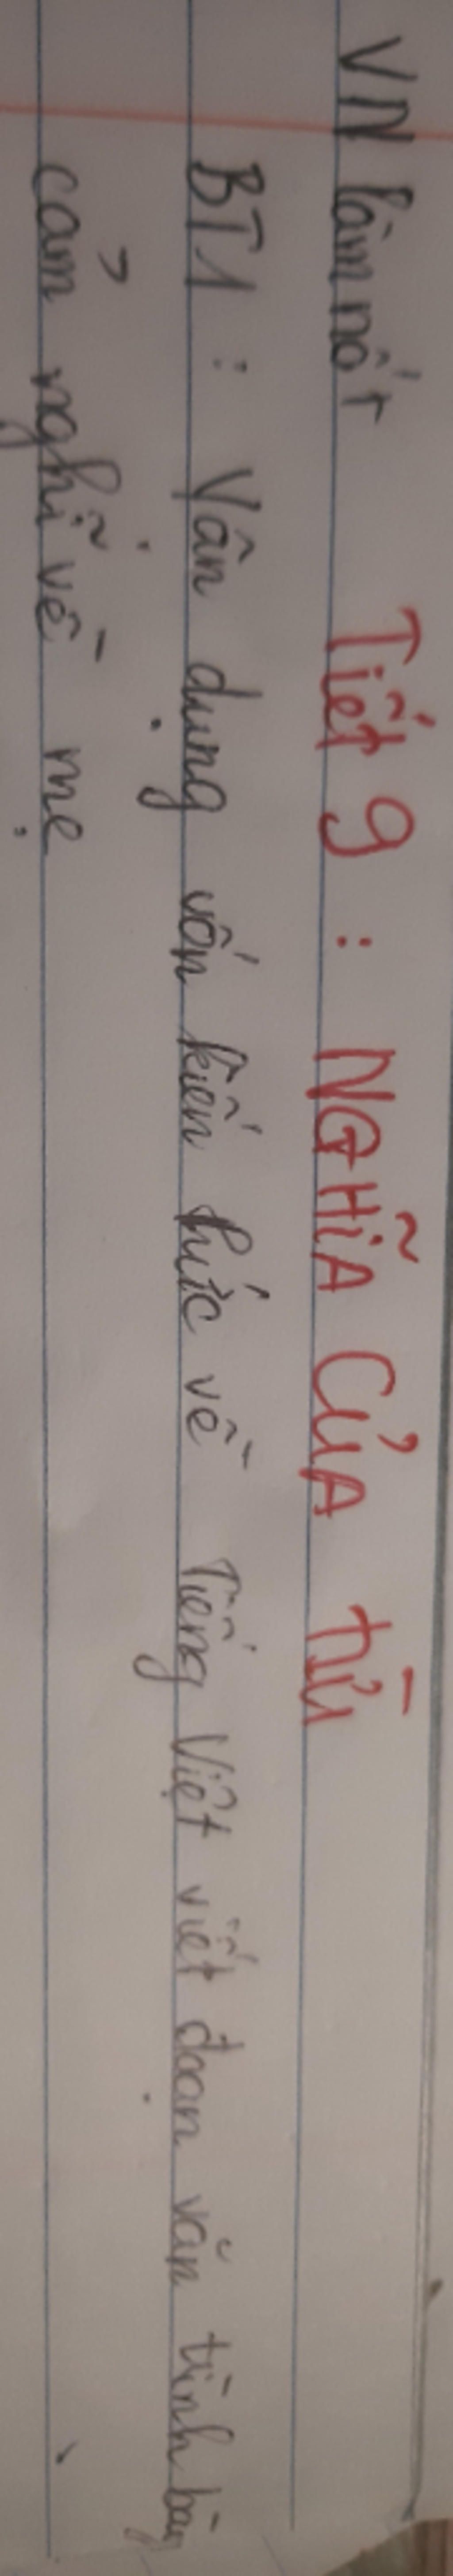 VN làm nốt Tiết 9 : NGHĨA CỦA TỪ
BT1 : Vận dụng vốn kiến thức về Tiếng Việt viết đoạn văn trình bày
cảm nghĩ về mẹ